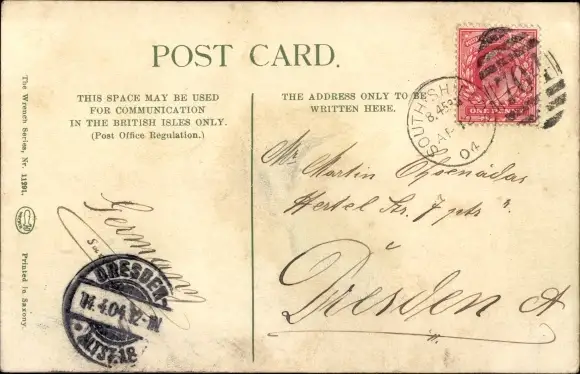 POST CARD.
THIS SPACE MAY BE USED
FOR COMMUNICATION
IN THE BRITISH ISLES ONLY.
(Post Office Regulation.)
THE ADDRESS ONLY TO BE
WRITTEN HERE.
ONE PENNY
SOUTH SH
8.45
AP
04
Mr Martin
Hertel Str. 7
Dresden A
Germany
DRESDEN
14.4.04.12-
ALTST.18
The Wrench Series, Nr. 11991.
Printed in Saxony.